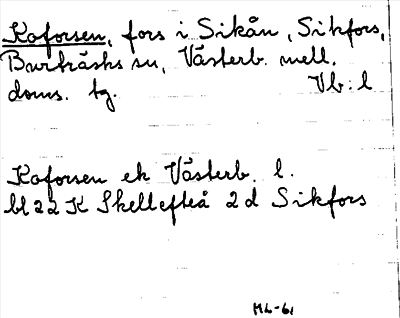 Koforsen, fors i Sikån, Sikfors,
Burträsks sn, Västerb. mell.
doms. tg. Vb: l
Koforsen ek Västerb. l.
bl 22 K Skellefteå 2 d Sikfors
ML-61